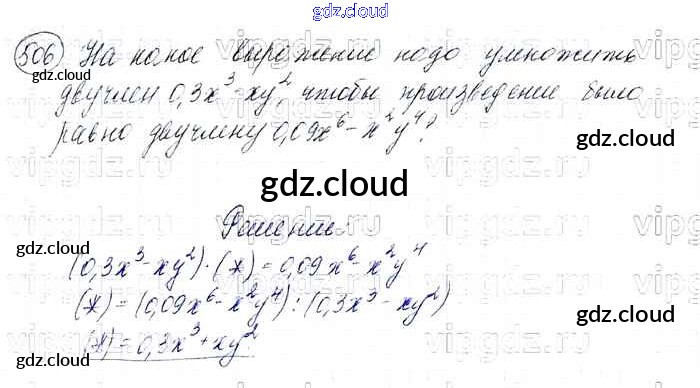 gdz.cloud
506 На какое выражение надо умножить
двучлен 0,3x³-xy², чтобы произведение было
gdz.cloud
равно двучлену 0,09x⁶-x²y⁴?
gdz.cloud
gdz.cloud
Решение:
gdz.cloud
(0,3x³-xy²)·(*)=0,09x⁶-x²y⁴
(*)=(0,09x⁶-x²y⁴):(0,3x³-xy²)
gdz.cloud
(*)=0,3x³+xy²
gdz.cloud
gdz.cloud